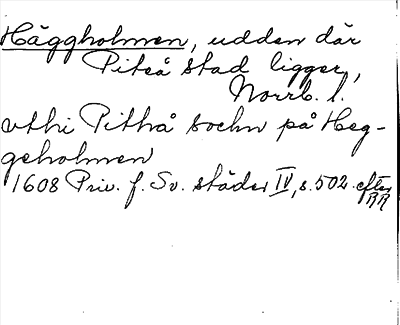 Häggholmen, udden där
Piteå stad ligger,
Norrb. l.
vthi Pithå sochn på Heg-
geholmen
1608 Priv. f. Sv. städer IV, s. 502. efter
RR